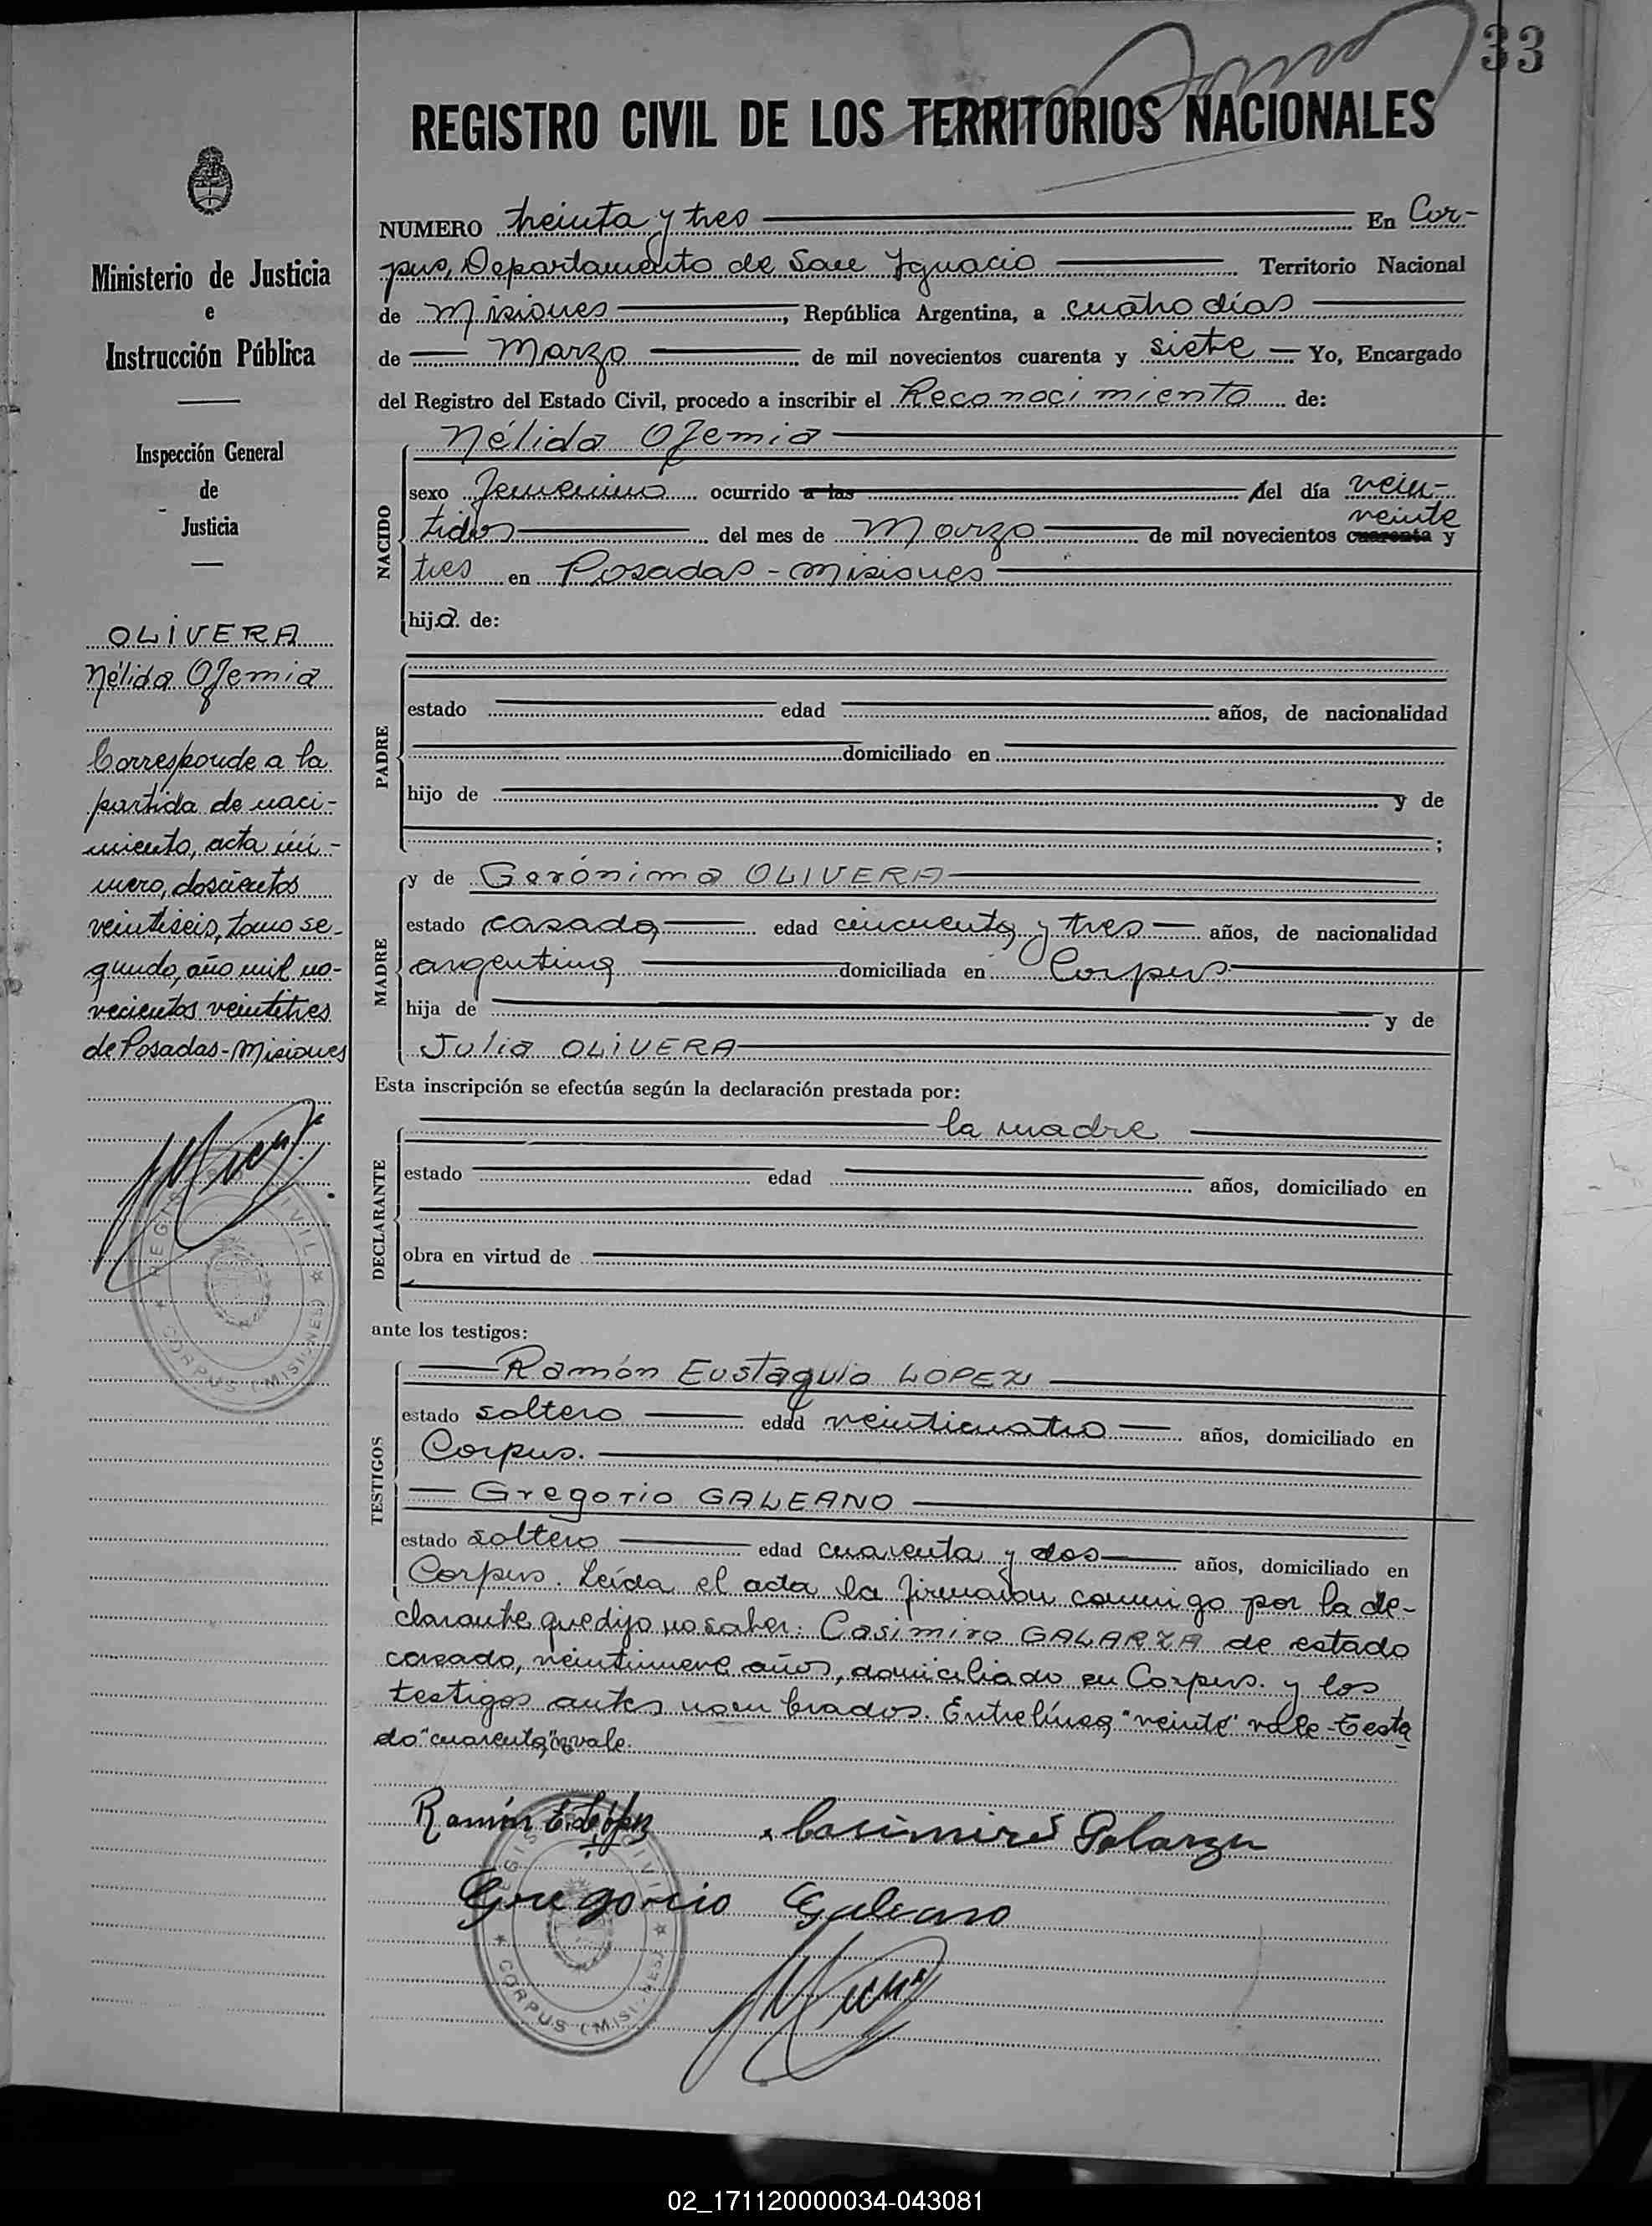 33
REGISTRO CIVIL DE LOS TERRITORIOS NACIONALES
Ministerio de Justicia
e
Instrucción Pública
Inspección General
de
Justicia
OLIVERA
Nélida Ofemia
Corresponde a la
partida de naci-
miento, acta nú-
mero, doscientos
veintiseis, tomo se-
gundo, año mil no-
vecientos veintitres
de Posadas-Misiones
REGISTRO CIVIL
CORPUS (MISIONES)
NUMERO treinta y tres En Cor-
pus, Departamento de San Ignacio Territorio Nacional
de Misiones, República Argentina, a cuatro días
de Marzo de mil novecientos cuarenta y siete Yo, Encargado
del Registro del Estado Civil, procedo a inscribir el Reconocimiento de:
NACIDO
Nélida Ofemia
sexo femenino ocurrido a las del día vein-
tidos del mes de Marzo de mil novecientos cuarenta veinte y
tres en Posadas - Misiones
hija de:
PADRE
estado edad años, de nacionalidad
domiciliado en
hijo de y de
;
MADRE
y de Gerónima OLIVERA
estado casada edad cincuenta y tres años, de nacionalidad
argentina domiciliada en Corpus
hija de y de
Julia OLIVERA
Esta inscripción se efectúa según la declaración prestada por:
DECLARANTE
la madre
estado edad años, domiciliado en
obra en virtud de
ante los testigos:
TESTIGOS
Ramón Eustaquio LOPEZ
estado soltero edad veinticuatro años, domiciliado en
Corpus.
Gregorio GALEANO
estado soltero edad cuarenta y dos años, domiciliado en
Corpus. Leída el acta la firmaron conmigo por la de-
clarante que dijo no saber: Casimiro GALARZA de estado
casado, veintinueve años, domiciliado en Corpus. y los
testigos antes nombrados. Entrelínea "veinte" vale-Testa
do "cuarenta" no vale.
Ramón E. López Casimiro Galarza
Gregorio Galeano
REGISTRO CIVIL
CORPUS (MISIONES)
02_171120000034-043081